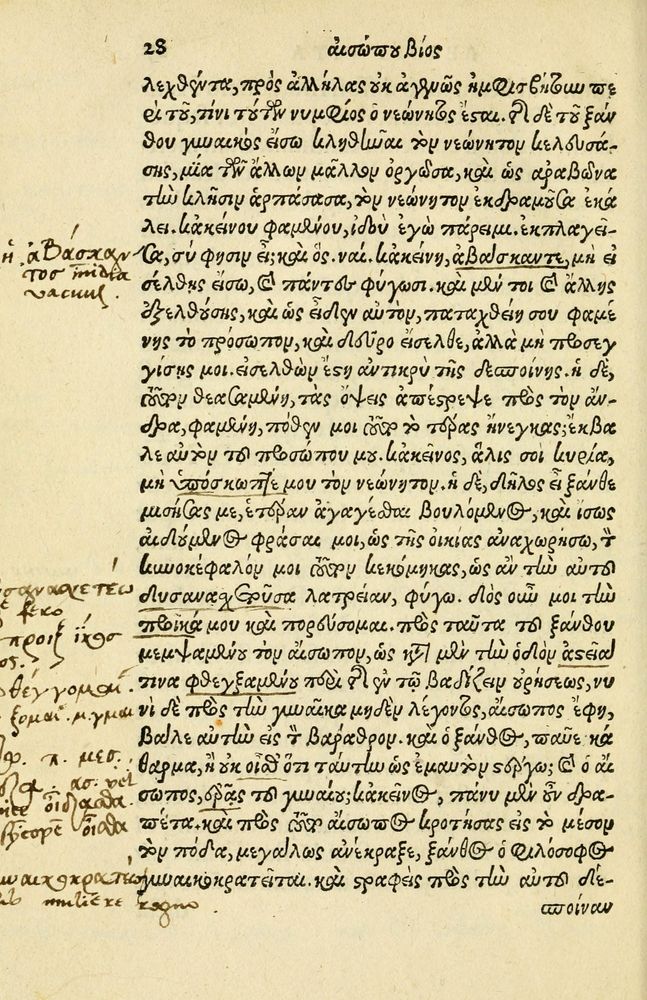 28 αισώπου βίος
λεχθέντα, πρὸς ἀλλήλας οὐκ ἀγεννῶς ἠμφισβήτουν πε
ρὶ τοῦ, τίνι τούτων νυμφίος ὁ νεώνητος ἔσται. τῆς δὲ τοῦ ξάν
θου γυναικὸς εἴσω κληθῆναι τὸν νεώνητον κελευσά-
σης, μία τῶν ἄλλων μᾶλλον ὀργῶσα, καὶ ὡς ἀραβῶνα
τὴν κλῆσιν ἁρπάσασα, τὸν νεώνητον ἐκδραμοῦσα ἐκά
λει. κἀκείνου φαμένου, ἰδοὺ ἐγὼ πάρειμι. ἐκπλαγεῖ-
σα, σύ φησιν εἶ; καὶ ὅς. ναί. κἀκείνη, ἀβάσκαντε, μὴ εἰ
σέλθῃς εἴσω, καὶ πάντες φύγωσι. καὶ μέν τοι καὶ ἄλλης
ἐξελθούσης, καὶ ὡς εἶδεν αὐτὸν, παταχθείη σου φαμέ
νης τὸ πρόσωπον, καὶ δεῦρο εἴσελθε, ἀλλὰ μὴ προσεγ
γίσῃς μοι. εἰσελθὼν ἔστη ἀντικρὺ τῆς δεσποίνης. ἡ δὲ,
τοῦτον θεασαμένη, τὰς ὄψεις ἀπέστρεψε πρὸς τὸν ἄν-
δρα, φαμένη, πόθεν μοι τοῦτο τὸ τέρας ἤνεγκας; ἔκβα
λε αὐτὸν τοῦ προσώπου μου. κἀκεῖνος, ἅλις σοι κυρία,
μὴ ὑπόσκωπτέ μου τὸν νεώνητον. ἡ δὲ, δῆλος εἶ ξάνθε
μισήσας με, ἑτέραν ἀγαγέσθαι βουλόμενος, καὶ ἴσως
αἰδούμενος φράσαι μοι, ὡς τῆς οἰκίας ἀναχωρήσω, τὸν
κυνοκέφαλόν μοι τοῦτον κεκόμικας, ὡς ἂν τὴν αὐτοῦ
δυσανασχετοῦσα λατρείαν, φύγω. δὸς οὖν μοι τὴν
προῖκά μου καὶ πορεύσομαι. πρὸς ταῦτα τοῦ ξάνθου
μεμψαμένου τὸν αἴσωπον, ὡς κατὰ μὲν τὴν ὁδὸν ἀστεῖά
τινα φθεγξαμένου περὶ τῆς ἐν τῷ βαδίζειν οὐρήσεως, νυ
νὶ δὲ πρὸς τὴν γυναῖκα μηδὲν λέγοντος, αἴσωπος ἔφη,
βάλε αὐτὴν εἰς τὸ βάραθρον. καὶ ὁ ξάνθος, παῦε κά
θαρμα, ἢ οὐκ οἶσθα ὅτι ταύτην ὡς ἐμαυτὸν στέργω; καὶ ὁ αἴ
σωπος, ἐρᾷς τοῦ γυναίου; κἀκεῖνος, πάνυ μὲν οὖν δρα-
πέτα. καὶ πρὸς τοῦτο αἴσωπος κροτήσας εἰς τὸ μέσον
τὸν πόδα, μεγάλως ἀνέκραξε, ξάνθος ὁ φιλόσοφος
γυναικοκρατεῖται. καὶ στραφεὶς πρὸς τὴν αὐτοῦ δέ-
σποιναν
ἀβάσκαν
τος invidia
vacuus.
φθέγγομαι
οἶσθα
muliere regno